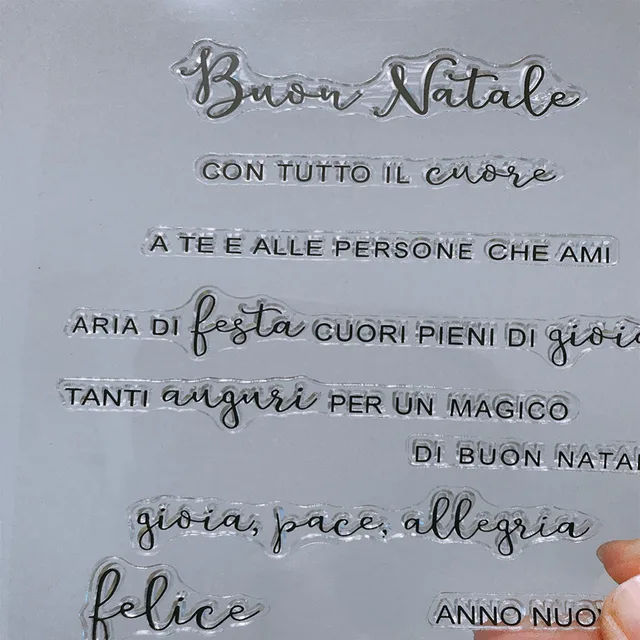 Buon Natale
CON TUTTO IL cuore
A TE E ALLE PERSONE CHE AMI
ARIA DI festa CUORI PIENI DI gioia
TANTI auguri PER UN MAGICO
DI BUON NATAL
gioia, pace, allegria
felice
ANNO NUOV